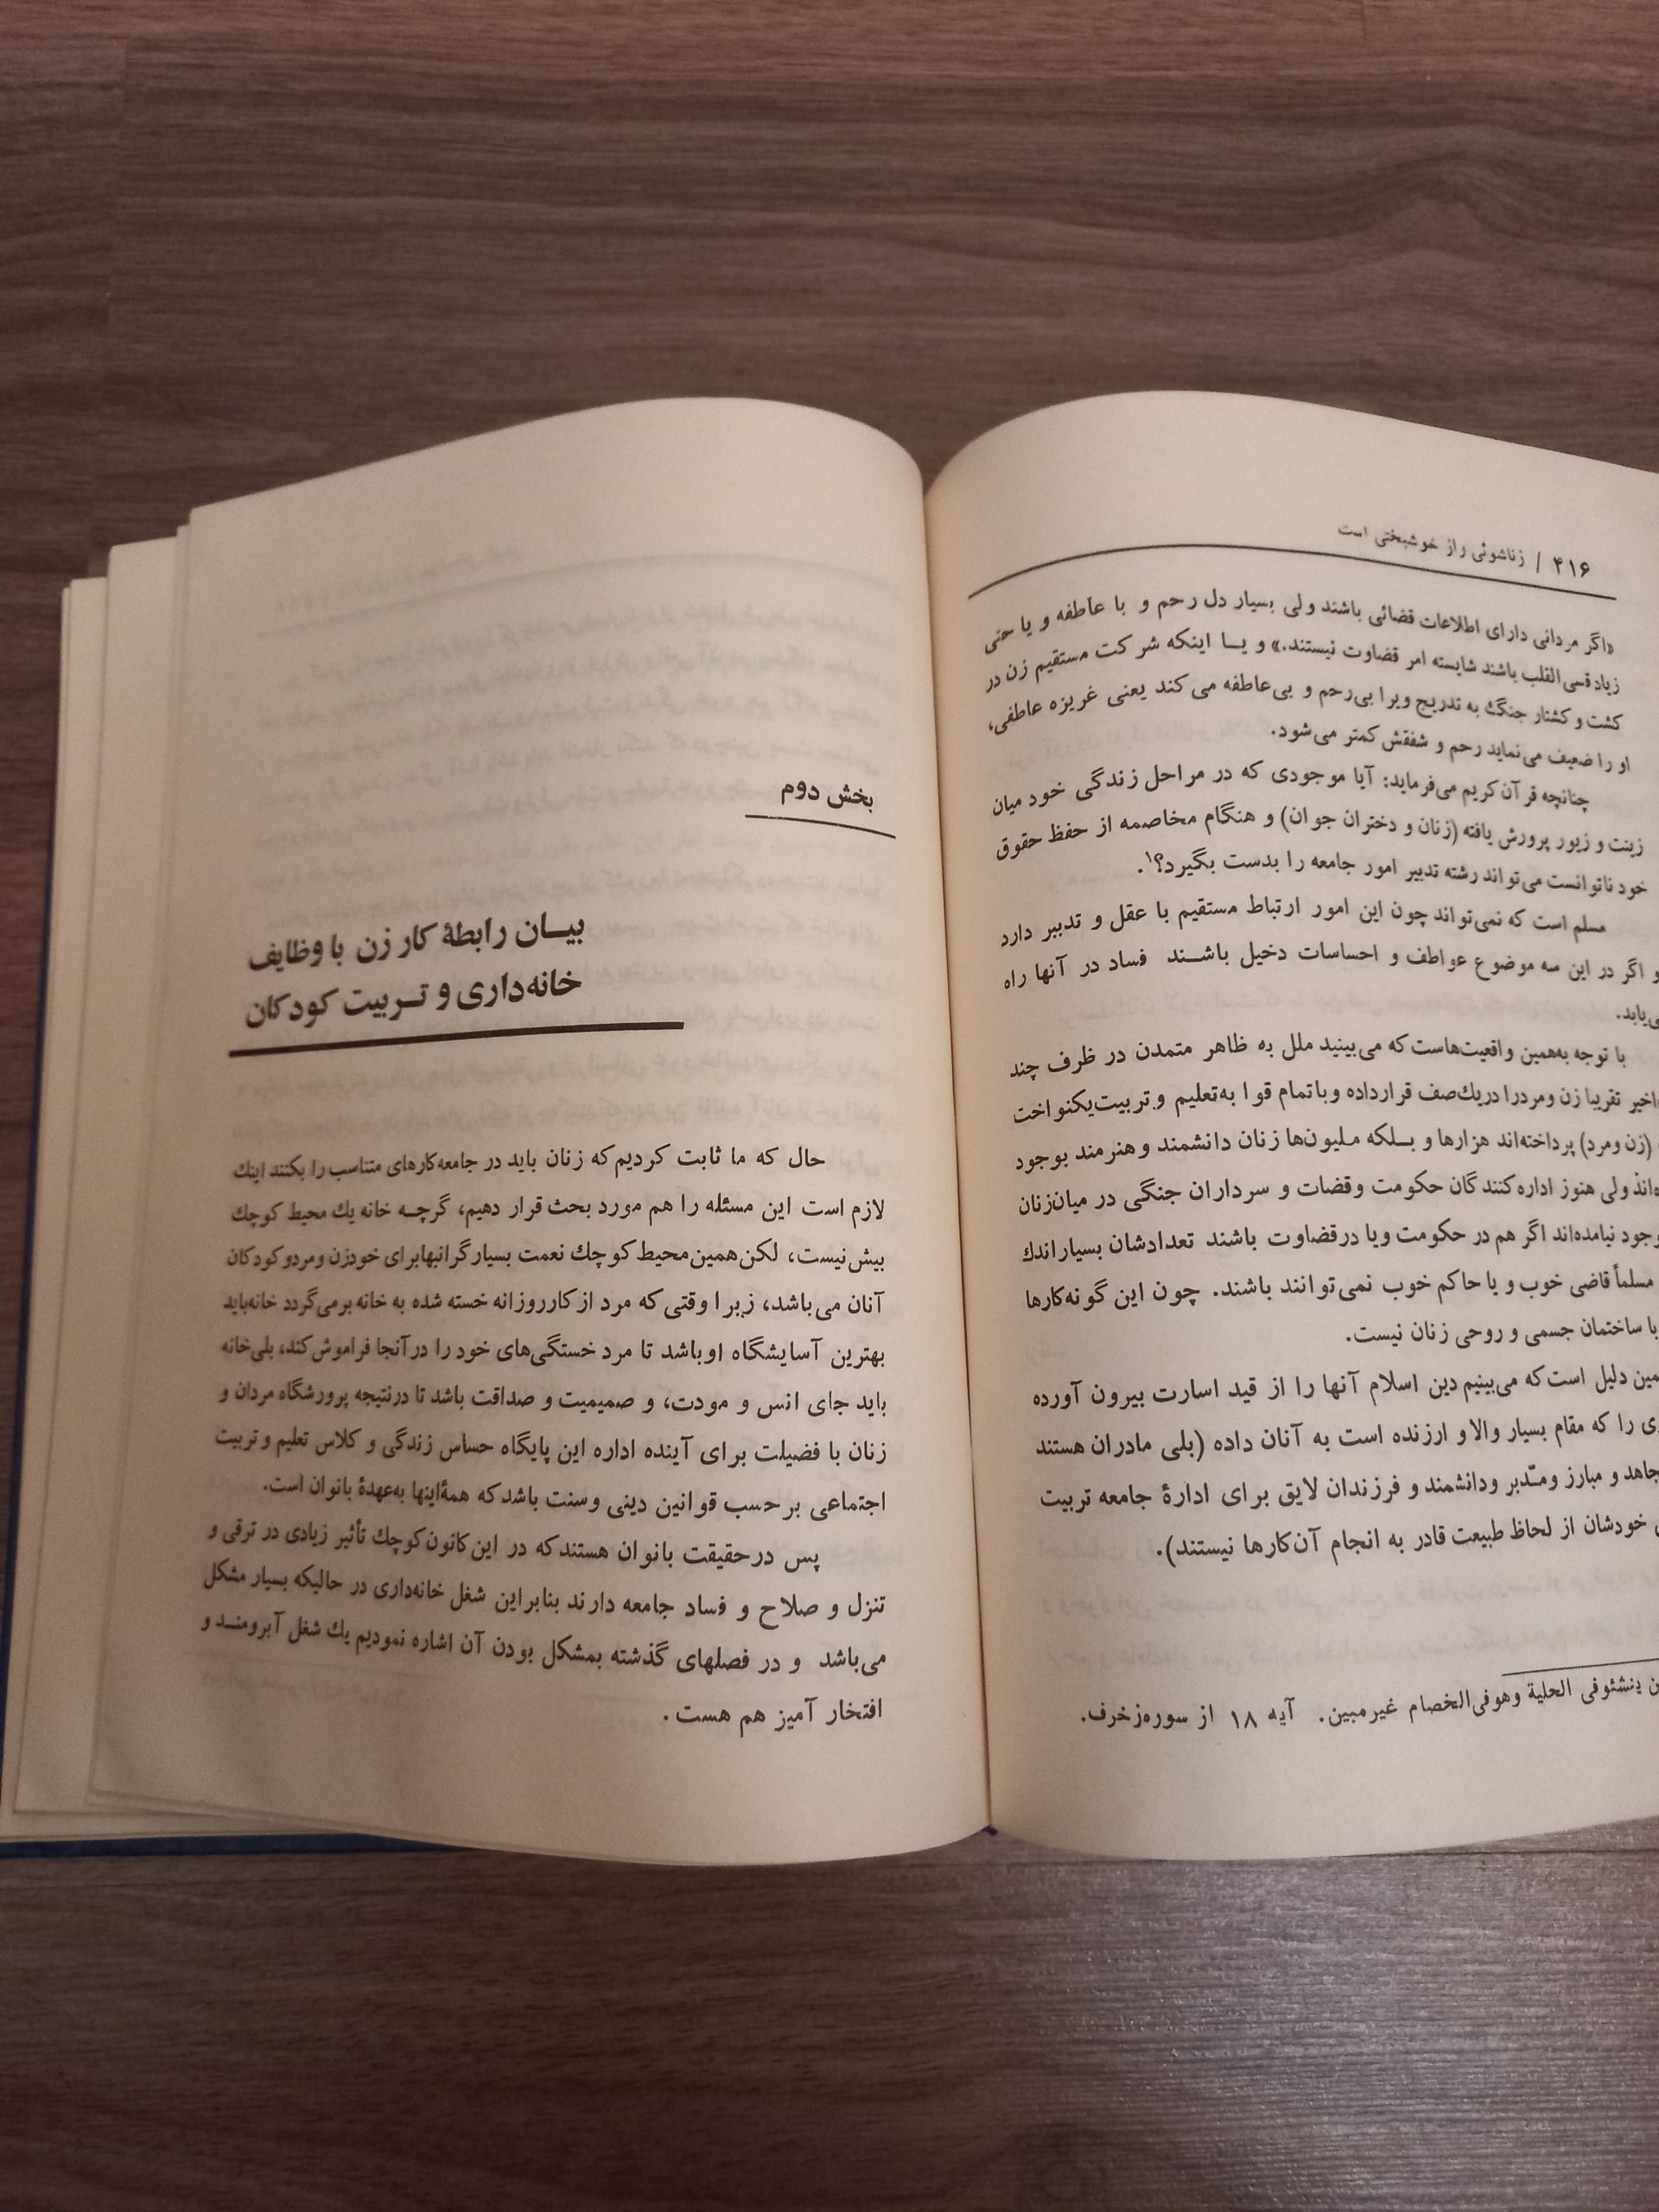 ۴۱۶ / زناشوئی راز خوشبختی است
«اگر مردانی دارای اطلاعات قضائی باشند ولی بسیار دل رحم و با عاطفه و یا حتی
زیاد قسی‌القلب باشند شایسته امر قضاوت نیستند.» و یا اینکه شرکت مستقیم زن در
کشت و کشتار جنگ به تدریج ویرا بی‌رحم و بی‌عاطفه می‌کند یعنی غریزه عاطفی،
او را ضعیف می‌نماید رحم و شفقش کمتر می‌شود.
چنانچه قرآن کریم می‌فرماید: آیا موجودی که در مراحل زندگی خود میان
زینت و زیور پرورش یافته (زنان و دختران جوان) و هنگام مخاصمه از حفظ حقوق
خود ناتوانست می‌تواند رشته تدبیر امور جامعه را بدست بگیرد؟۱.
مسلم است که نمی‌تواند چون این امور ارتباط مستقیم با عقل و تدبیر دارد
و اگر در این سه موضوع عواطف و احساسات دخیل باشند فساد در آنها راه
می‌یابد.
با توجه به‌همین واقعیت‌هاست که می‌بینید ملل به ظاهر متمدن در ظرف چند
اخیر تقریبا زن ومردرا دریك‌صف قرارداده وباتمام قوا به‌تعلیم وتربیت‌یکنواخت
(زن ومرد) پرداخته‌اند هزارها و بلکه ملیون‌ها زنان دانشمند وهنرمند بوجود
ولی هنوز اداره‌کنندگان حکومت وقضات و سرداران جنگی در میان‌زنان
بوجود نیامده‌اند اگر هم در حکومت ویا درقضاوت باشند تعدادشان بسیاراندك
مسلماً قاضی خوب و یا حاکم خوب نمی‌توانند باشند. چون این گونه‌کارها
با ساختمان جسمی و روحی زنان نیست.
دلیل است‌که می‌بینیم دین اسلام آنها را از قید اسارت بیرون آورده
را که مقام بسیار والا و ارزنده است به آنان داده (بلی مادران هستند
مجاهد و مبارز ومتدبر ودانشمند و فرزندان لایق برای ادارهٔ جامعه تربیت
خودشان از لحاظ طبیعت قادر به انجام آن‌کارها نیستند).
ینشئوفی الحلیة وهوفی‌الخصام غیرمبین. آیه ۱۸ از سوره‌زخرف.
بخش دوم
بیـان رابطهٔ کار زن با وظایف
خانه‌داری و تـربیت کودکان
حال که ما ثابت کردیم‌که زنان باید در جامعه‌کارهای متناسب را بکنند اینك
لازم است این مسئله را هم مورد بحث قرار دهیم، گرچه خانه یك محیط کوچك
بیش‌نیست، لکن‌همین‌محیط‌کوچك نعمت بسیارگرانبهابرای خودزن ومردوکودکان
آنان می‌باشد، زیرا وقتی‌که مرد ازکارروزانه خسته شده به خانه برمی‌گردد خانه‌باید
بهترین آسایشگاه اوباشد تا مرد خستگی‌های خود را درآنجا فراموش‌کند، بلی‌خانه
باید جای انس و مودت، و صمیمیت و صداقت باشد تا درنتیجه پرورشگاه مردان و
زنان با فضیلت برای آینده اداره این پایگاه حساس زندگی و کلاس تعلیم وتربیت
اجتماعی برحسب قوانین دینی وسنت باشدکه همهٔاینها به‌عهدهٔ بانوان است.
پس درحقیقت بانوان هستندکه در این‌کانون‌کوچك تأثیر زیادی در ترقی و
تنزل و صلاح و فساد جامعه دارند بنابراین شغل خانه‌داری در حالیکه بسیار مشکل
می‌باشد و در فصلهای گذشته بمشکل بودن آن اشاره نمودیم یك شغل آبرومنـد و
افتخار آمیز هم هست.